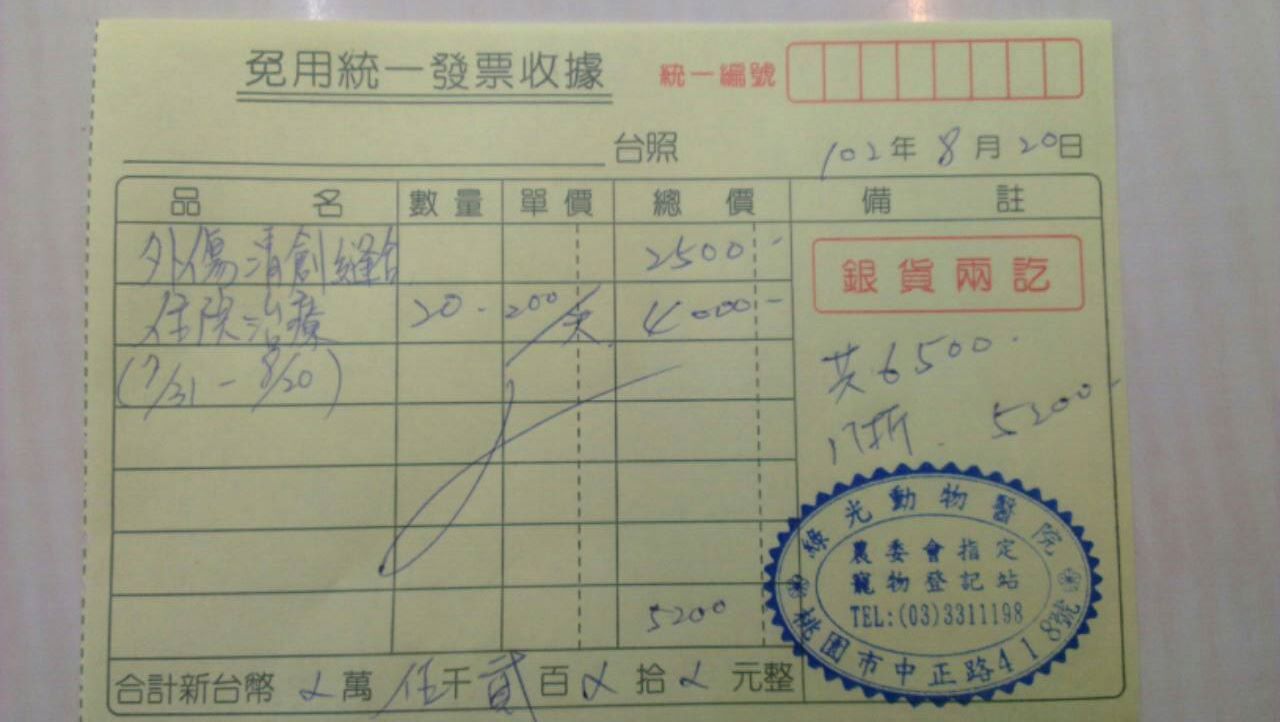 免用統一發票收據 統一編號
台照 102年8月20日
品名 數量 單價 總價 備註
外傷清創縫合 2500-
銀貨兩訖
住院治療 20- 200/天 4000-
(7/31-8/20)
共6500-
8折. 5200-
5200
合計新台幣 萬伍千貳百 拾 元整
綠光動物醫院
農委會指定
寵物登記站
TEL:(03)3311198
桃園市中正路418號